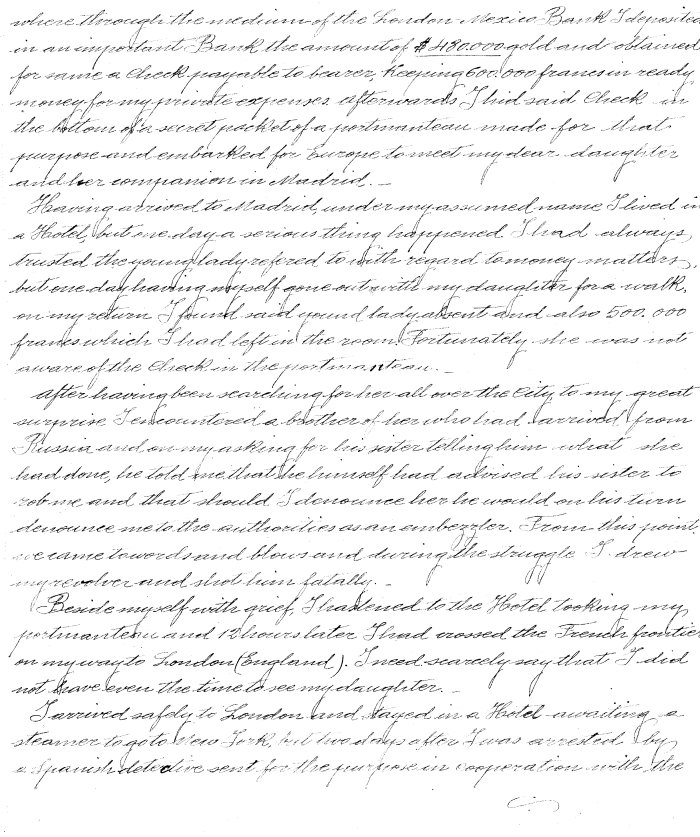 where through the medium of the London Mexico Bank I deposited
in an important Bank the amount of $480.000 gold and obtained
for same a Check payable to bearer, keeping 600.000 francs in ready
money for my private expenses afterwards I hid said Check in
the bottom of a secret pocket of a portmanteau made for that
purpose and embarked for Europe to meet my dear daughter
and her companion in Madrid. _
Having arrived to Madrid, under my assumed name I lived in
a Hotel, but one day a serious thing happened I had always
trusted the young lady refered to with regard to money matters,
but one day having myself gone out with my daughter for a walk,
on my return I found said yound lady absent and also 500.000
francs which I had left in the room. Fortunately she was not
aware of the Check in the portmanteau. _
After having been searching for her all over the City, to my great
surprise I encountered a brother of her who had arrived from
Russia and on my asking for his sister telling him what she
had done, he told me that he himself had advised his sister to
rob me and that should I denounce her he would on his turn
denounce me to the authorities as an embezzler. From this point,
we came to words and blows and during the struggle I drew
my revolver and shot him fatally. _
Beside myself with grief, I hastened to the Hotel tooking my
portmanteau and 12 hours later I had crossed the French frontier
on my way to London (England). I need scarcely say that I did
not have even the time to see my daughter. _
I arrived safely to London and stayed in a Hotel awaiting a
steamer to go to New York, but two days after I was arrested by
a Spanish detective sent for the purpose in cooperation with the